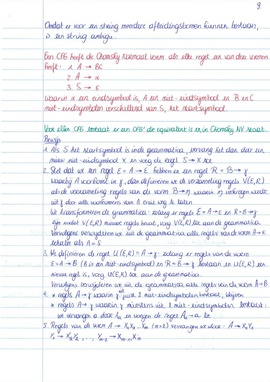 9
Omdat er voor een string meerdere afleidingsbomen kunnen bestaan,
is een string ambigu.
Een CFG heeft de Chomsky Normaal Vorm als elke regel en van deze vormen
heeft:
1. A → BC
2. A → α
3. S → ε
waarin α een eindsymbool is, A een niet-eindsymbool en B en C
niet-eindsymbolen verschillend van S, het startsymbool.
Voor elke CFG bestaat er een CFG' die equivalent is en in Chomsky NV staat.
Bewijs
1. Als S het startsymbool is in de grammatica, vervang het dan door een
nieuw niet-eindsymbool X en voeg de regel S → X toe
2. Stel dat we een regel E = A → ε hebben en een regel R = B → γ
waarbij A voorkomt in γ, dan definiëren we de verzameling regels V(E,R)
als de verzameling regels van de vorm B → η waarin η verkregen wordt
uit γ door elke voorkomen van A
We transformeren de grammatica: zolang er regels E = A → ε en R = B → γ
zijn zodat V(E,R) nieuwe regels bevat, voeg V(E,R) toe aan de grammatica.
Vervolgens verwijderen we uit de grammatica alle regels van de vorm A → ε
behalve als A = S
3. We definiëren de regel U(E,R) = A → γ zolang er regels van de vorm
E = A → B (B is een niet-eindsymbool) en R = B → γ bestaan en U(E,R) een
nieuwe regel is, voeg U(E,R) toe aan de grammatica.
Vervolgens verwijderen we uit de grammatica alle regels van de vorm A → B
4. * regels A → γ waarin γ uit 2 niet-eindsymbolen bestaat, blijven
* regels A → γ waarin γ minstens uit 2 niet-eindsymbolen bestaat:
we vervangen a door Aₐ en voegen de regel Aₐ → a toe.
5. Regels van de vorm A → X₁X₂...Xₙ (n>2) vervangen we door: A → X₁Y₁
Y₁ → X₂Y₂